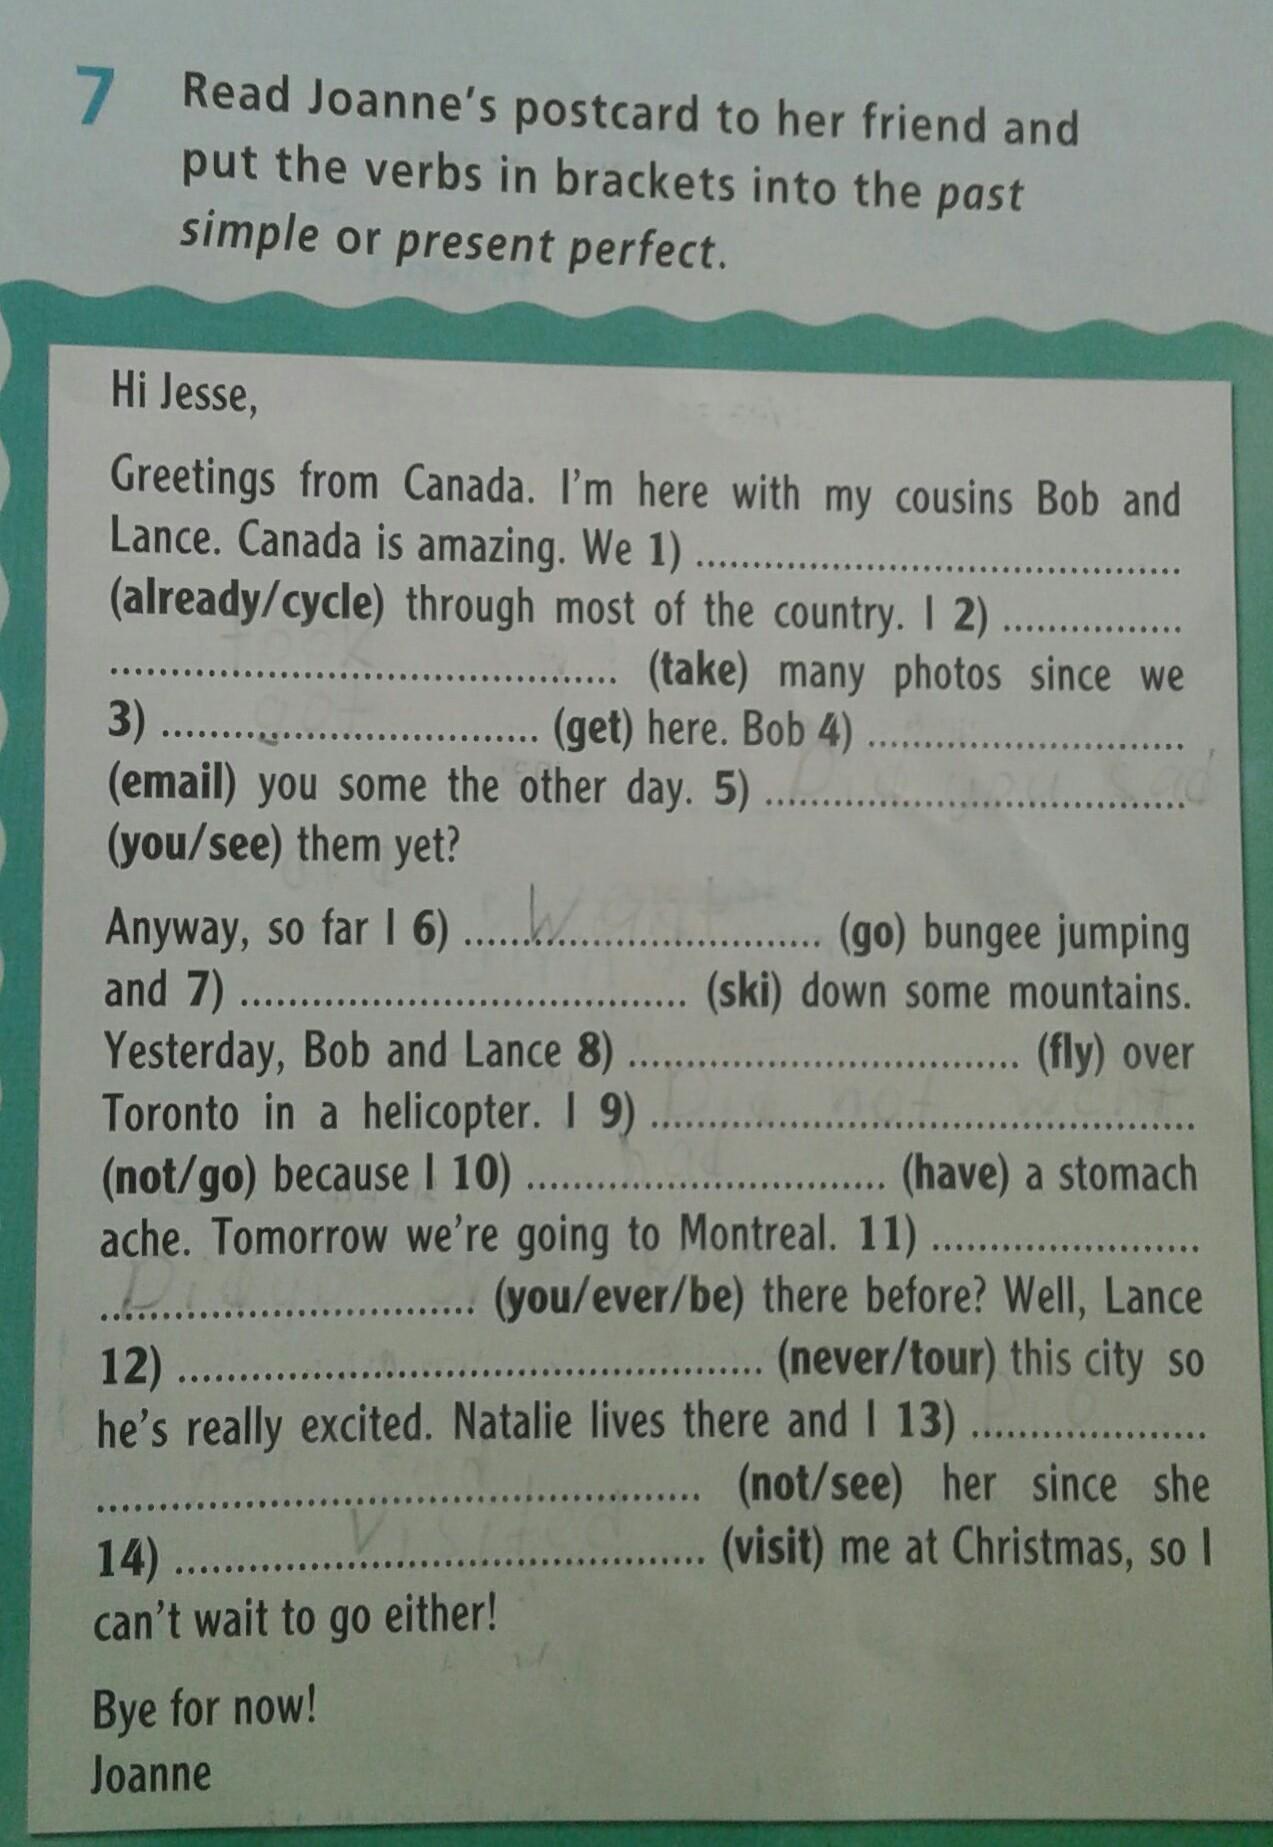 7 Read Joanne's postcard to her friend and
put the verbs in brackets into the past
simple or present perfect.
Hi Jesse,
Greetings from Canada. I'm here with my cousins Bob and
Lance. Canada is amazing. We 1) ........................................
(already/cycle) through most of the country. I 2) ................
.......................................... (take) many photos since we
3) ................................ (get) here. Bob 4) ...........................
(email) you some the other day. 5) ...................................
(you/see) them yet?
Anyway, so far I 6) .............................. (go) bungee jumping
and 7) ..................................... (ski) down some mountains.
Yesterday, Bob and Lance 8) ................................ (fly) over
Toronto in a helicopter. I 9) .............................................
Did not went
(not/go) because I 10) .............................. (have) a stomach
had
ache. Tomorrow we're going to Montreal. 11) ......................
............................... (you/ever/be) there before? Well, Lance
12) ................................................ (never/tour) this city so
he's really excited. Natalie lives there and I 13) ...................
.................................................. (not/see) her since she
14) ............................................ (visit) me at Christmas, so I
visited
can't wait to go either!
Bye for now!
Joanne